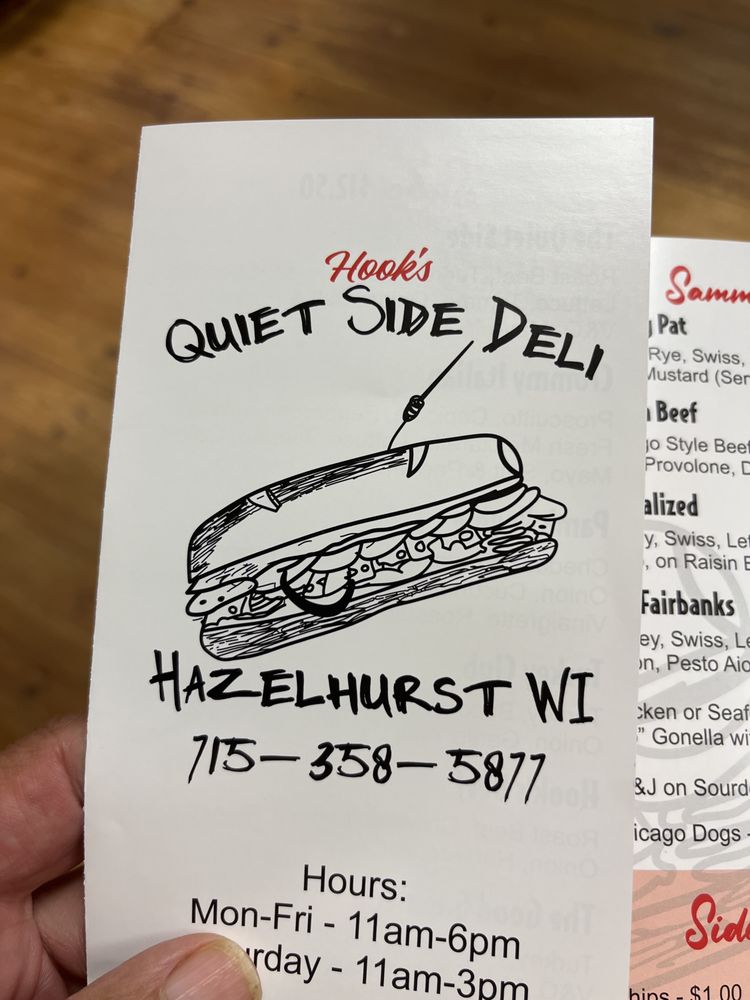 Hook's
QUIET SIDE DELI
HAZELHURST WI
715-358-5877
Hours:
Mon-Fri - 11am-6pm
rday - 11am-3pm
Samm
Pat
Rye, Swiss,
Mustard (Ser
Beef
go Style Beef
Provolone, D
alized
y, Swiss, Let
, on Raisin B
Fairbanks
ey, Swiss, Le
on, Pesto Aio
cken or Seaf
" Gonella wi
&J on Sourd
icago Dogs -
Side
hips - $1.00